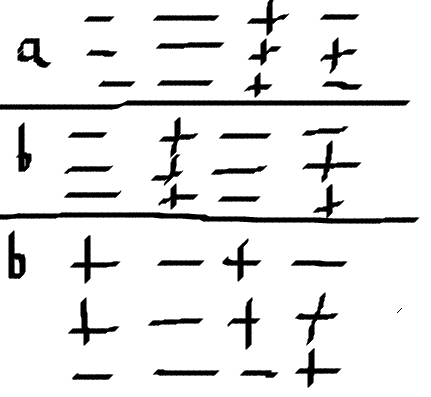 a - - + -
- - + +
- - + -
b - + - -
- + - +
- + - +
b + - + -
+ - + +
- - - +